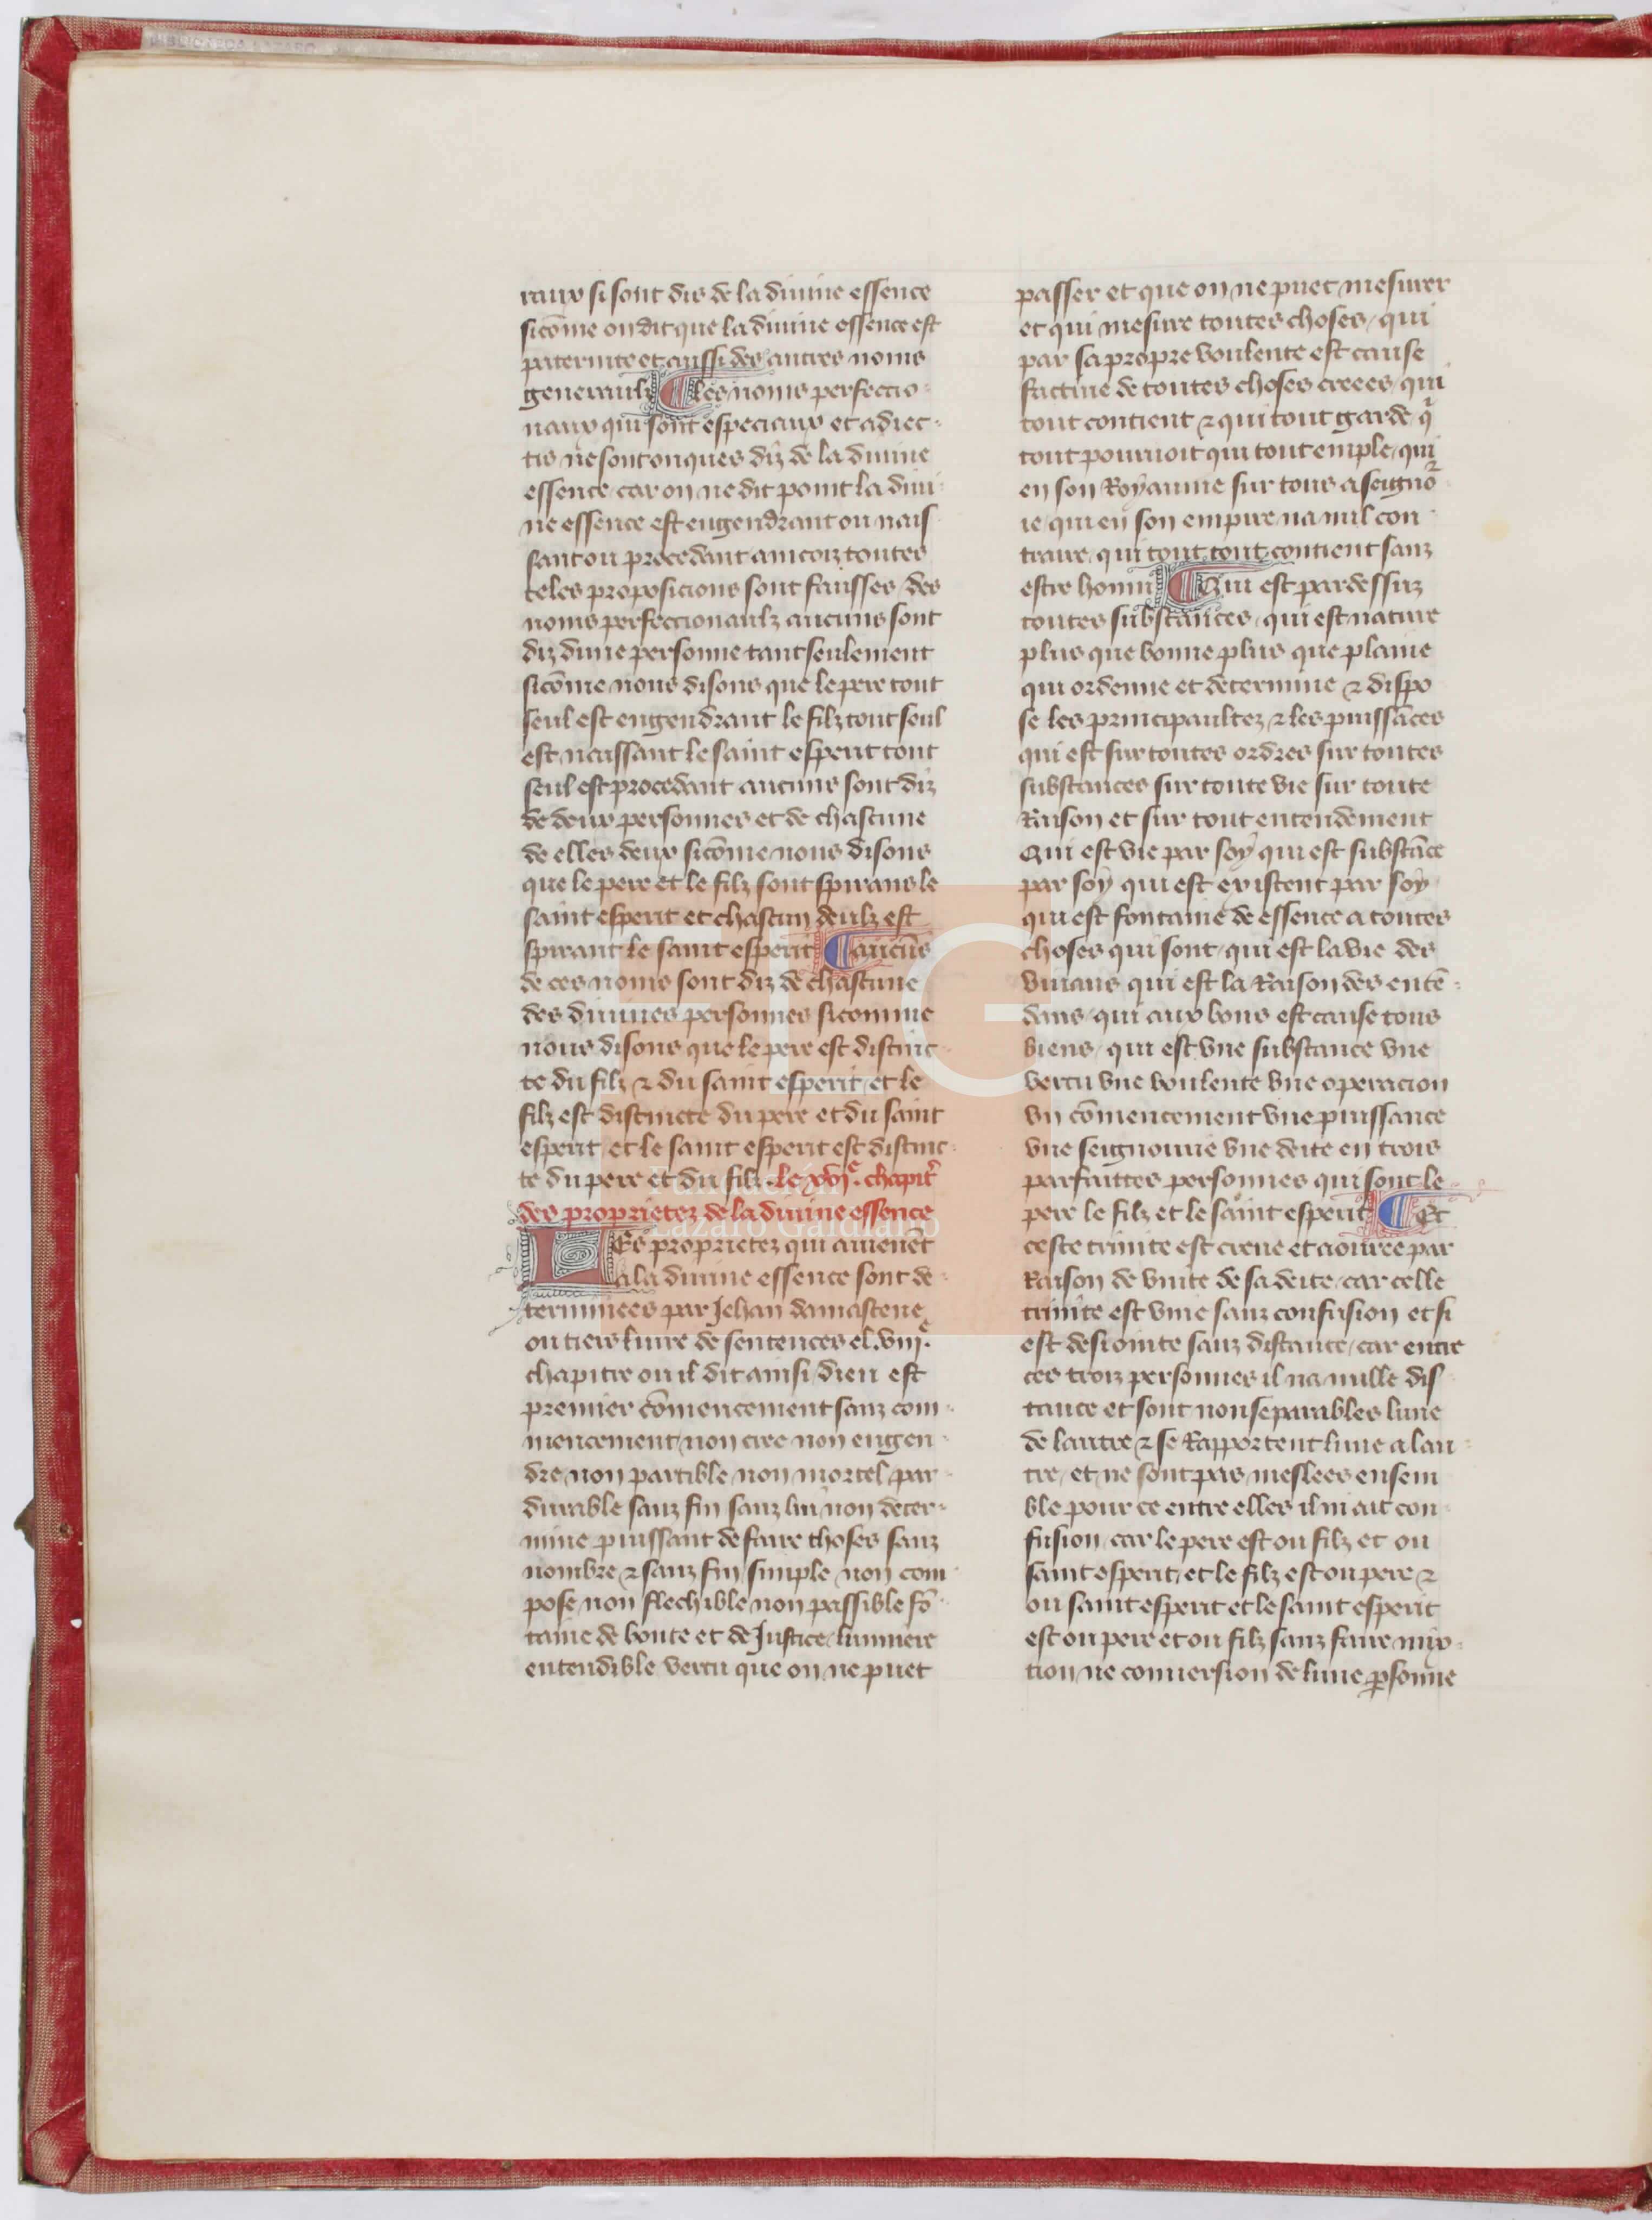 BIBLIOTECA LAZARO
raux si sont dis de la diuine essence
sicōme on dit que la diuine essence est
paternite et aussi des autres noms
generaulx ¶ les noms perfeccio-
naux qui sont especiaux et adiec-
tis ne sont onques diz de la diuine
essence / car on ne dit point la diui-
ne essence est engendrant ou nais-
sant ou procedant aincoiz toutes
teles proposicions sont fausses / des
noms perfeccionaulz aucuns sont
diz dune personne tant seulement
sicōme nous disons que le pere tout
seul est engendrant le filz tout seul
est naissant le saint esperit tout
seul est procedant aucuns sont diz
de deux personnes et de chascune
de elles deux sicōme nous disons
que le pere et le filz sont spirans le
saint esperit et chascun deulz est
spirant le saint esperit ¶ aucūs
de ces noms sont diz de chascune
des diuines personnes sicomme
nous disons que le pere est distinc-
te du filz ⁊ du saint esperit / et le
filz est distincte du pere et du saint
esperit / et le saint esperit est distinc-
te du pere et du filz . le xvijͤ. chapitͬ
des proprietez de la diuine essence
LEs proprietez qui auienēt
a la diuine essence sont de-
terminees par Jehan damascene
ou tiers liure de sentences el .viijͤ.
chapitre ou il dit ainsi / dieu est
premier cōmencement sanz com-
mencement / non cree non engen-
dre non partible non mortel par-
durable sanz fin sanz lui non deter-
mine puissant de faire choses sanz
nombre ⁊ sanz fin / simple non com-
pose non flechible non passible fō-
taine de bonte et de Justice / lumiere
entendible / vertu que on ne puet
passer et que on ne puet mesurer
et qui mesure toutes choses / qui
par sa propre voulente est cause
factiue de toutes choses creees / qui
tout contient ⁊ qui tout garde / qͥ
tout pouruoit qui tout emple / qui
en son Royaume sur tous a seignō-
ie / qui en son empire na nul con-
traire / qui tout tout contient sanz
estre honni ¶ Qui est par dessuz
toutes substances / qui est nature
plus que bonne plus que plaine
qui ordenne et determine ⁊ dispo
se les principaultez ⁊ les puissāces
qui est sur toutes ordres sur toutes
substances sur toute vie sur toute
Raison et sur tout entendement
Qui est vie par soy qui est substāce
par soy qui est existent par soy
qui est fontaine de essence a toutes
choses qui sont / qui est la vie des
viuans qui est la Raison des entē-
dans / qui aux bons est cause tous
biens / qui est vne substance vne
vertu vne voulente vne operacion
vn cōmencement vne puissance
vne seignourie vne deite en trois
parfaittes personnes qui sont le
pere le filz et le saint esperit ¶ Et
ceste trinite est creue et aouree par
Raison de vnite de sa deite / car celle
trinite est vnie sanz confusion et si
est desiointe sanz distance / car entre
ces troiz personnes il na nulle dis-
tance et sont non separables lune
de lautre ⁊ se Rapportent lune a lau-
tre / et ne sont pas meslees ensem
ble pour ce entre elles il ni ait con-
fusion / car le pere est ou filz et ou
saint esperit / et le filz est ou pere ⁊
ou saint esperit et le saint esperit
est ou pere et ou filz sanz faire mix-
tion / ne conuersion de lune ꝑsonne
FLG
Fundación
Lázaro Galdiano